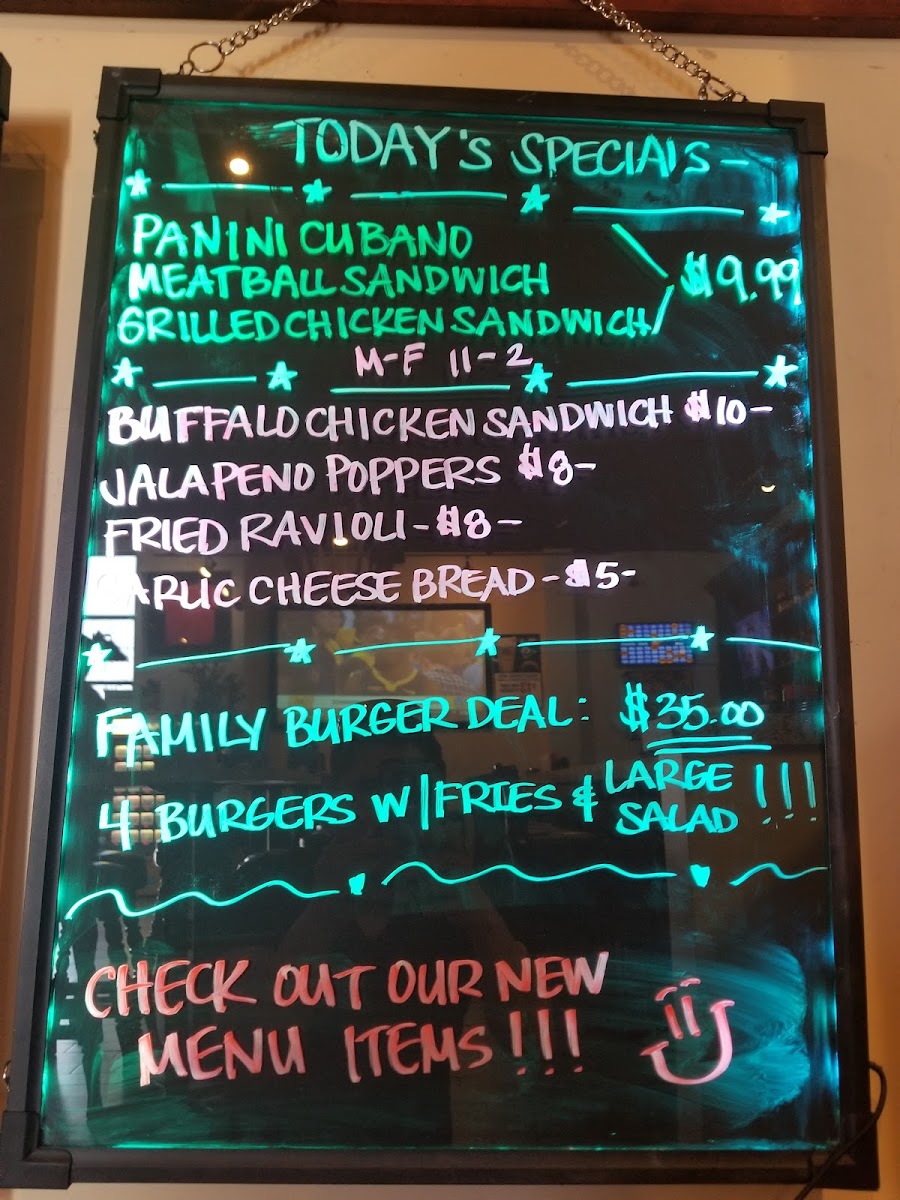 TODAY'S SPECIALS -
PANINI CUBANO
MEATBALL SANDWICH
GRILLED CHICKEN SANDWICH
$9.99
M-F 11-2
BUFFALO CHICKEN SANDWICH $10-
JALAPENO POPPERS $8-
FRIED RAVIOLI - $8-
GARLIC CHEESE BREAD - $5-
FAMILY BURGER DEAL: $35.00
4 BURGERS W/FRIES & LARGE SALAD !!!
CHECK OUT OUR NEW
MENU ITEMS!!!